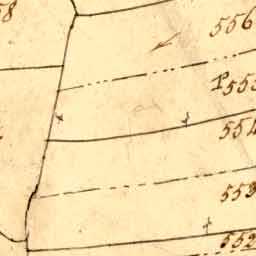 58
556
P555
554
553
552